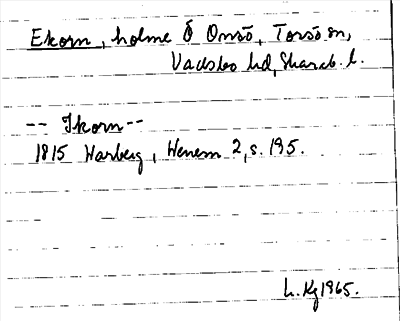 Ekorn, holme Ö Onsö, Torsö sn,
Vadsbo hd, Skarab. l.
-- Ikorn --
1815 Harberg, Wenern 2, s. 195.
L. Kg 1965.